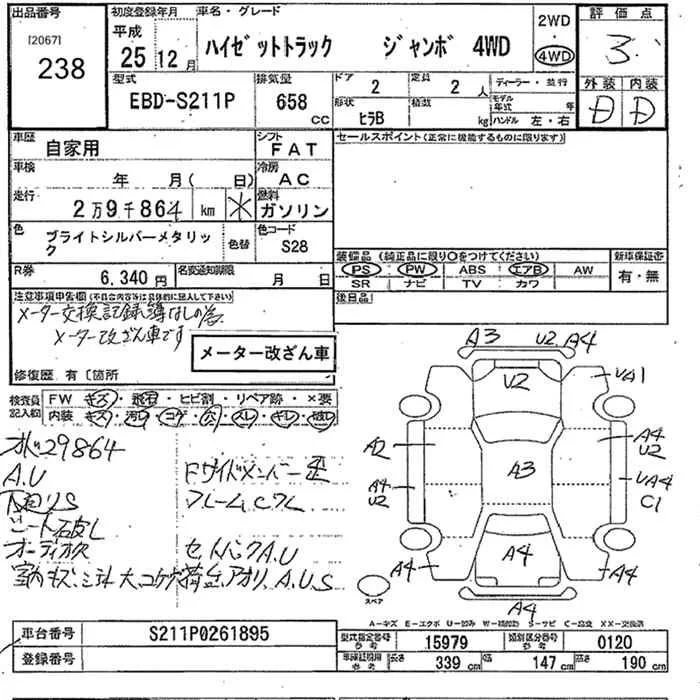 出品番号
[2067]
238
初度登録年月
平成
25 12 月
車名・グレード
ハイゼットトラック ジャンボ 4WD
2WD
4WD
評価点
3
外装 内装
D D
型式
EBD-S211P
排気量
658
CC
ドア
2
定員
2 人
ディーラー・並行
形状
ヒラB
積載
kg
モデル年式 年
ハンドル 左・右
車歴
自家用
シフト
FAT
車検
年 月( 日)
冷房
AC
走行
2万9千864 km ＊
燃料
ガソリン
色
ブライトシルバーメタリック
色替
色コード
S28
R券
6,340 円
名変通知期限
月 日
セールスポイント(正常に機能するものに限ります)
装備品 (純正品に限り○をつけてください)
PS PW ABS エアB AW
SR ナビ TV カワ
新車保証書
有・無
後日品
注意事項申告欄(不具合内容等は具体的に記入して下さい)
メーター交換記録簿なしの為
メーター改ざん車です
メーター改ざん車
修復歴 有 〔箇所
検査員記入欄
FW キズ・飛石・ヒビ割・リペア跡・×要
内装 キズ・汚れ・コゲ・穴・スレ・キレ・破れ
オドメ29864
A.U
下回りS
シート石皮レ
オーディオ欠
室内キズ、ミラー大、コゲ穴荷台、アオリ、A.U.S
Fサイドメンバー歪
フレームCクレ
セットバックA.U
A3 U2 A4
U2
UA1
A2
A4
U2
A3
A4
U2
UA4
C1
A4 A4 A4
A4
スペア
A-キズ E-エクボ U-凹み W-補修跡 S-サビ C-腐食 XX-交換済
車台番号
S211P0261895
登録番号
型式指定番号
参考
15979
類別区分番号
参考
0120
車庫証明用
参考
長さ
339 cm
幅
147 cm
高さ
190 cm